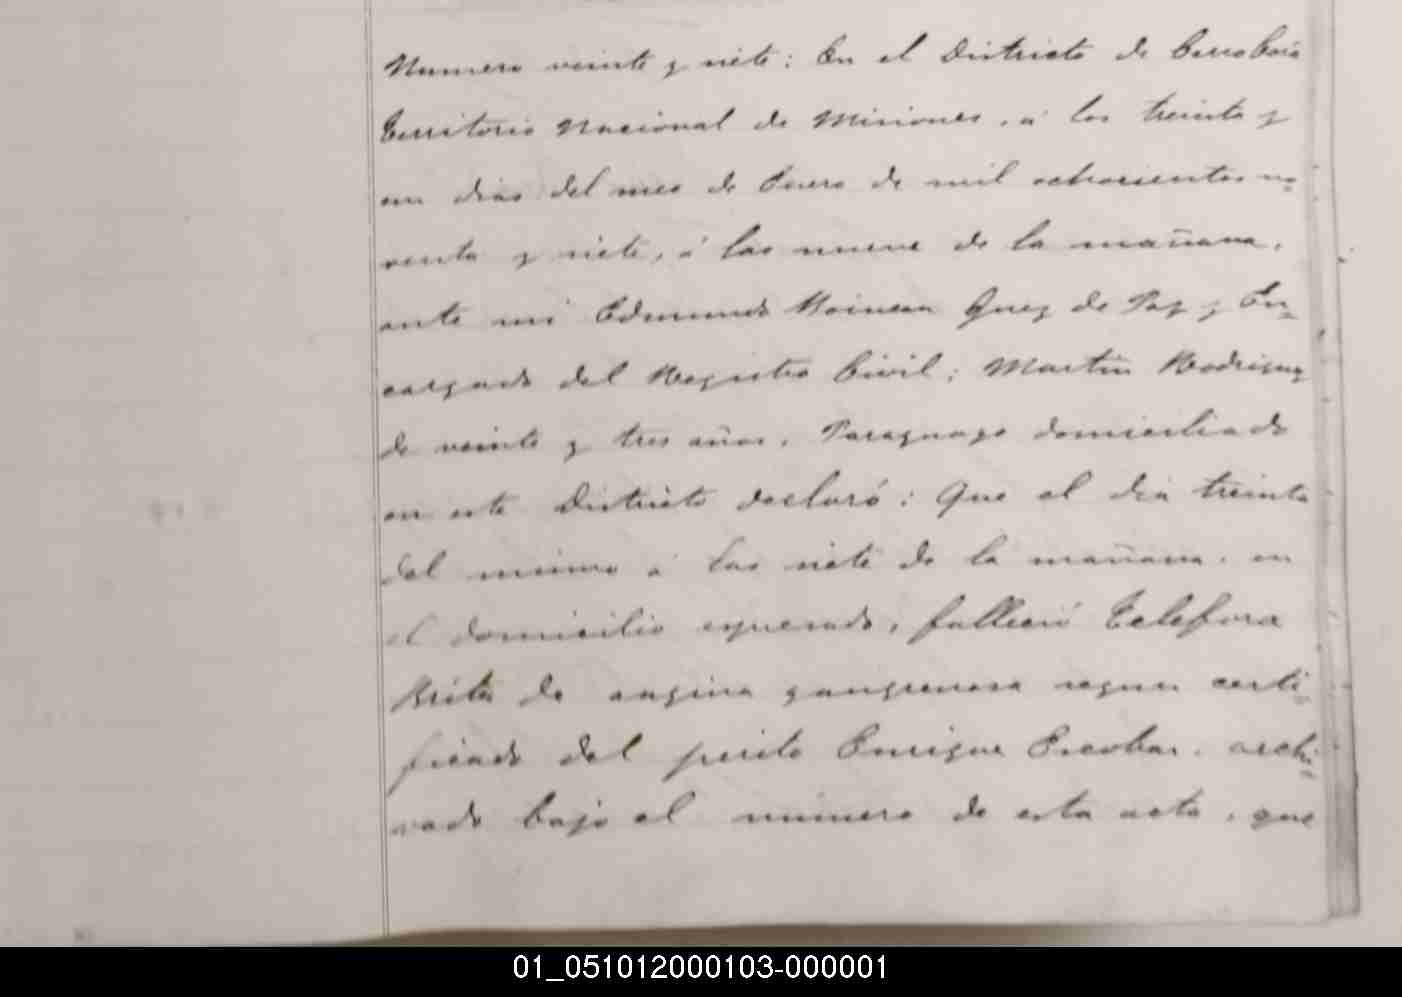 Numero veinte y siete: En el Distrito de Cerro Corá
Territorio Nacional de Misiones, á los treinta y
un dias del mes de Enero de mil ochocientos no=
venta y siete, á las nueve de la mañana,
ante mi Edmundo Juez de Paz y En=
cargado del Registro Civil; Martin Rodriguez
de veinte y tres años, Paraguayo domiciliado
en este Distrito declaró: Que el dia treinta
del mismo á las siete de la mañana, en
el domicilio espresado, falleció Telefora
Brites de angina gangrenosa segun certi=
ficado del perito Enrique Escobar, archi=
vado bajo el número de esta acta, que
01_051012000103-000001